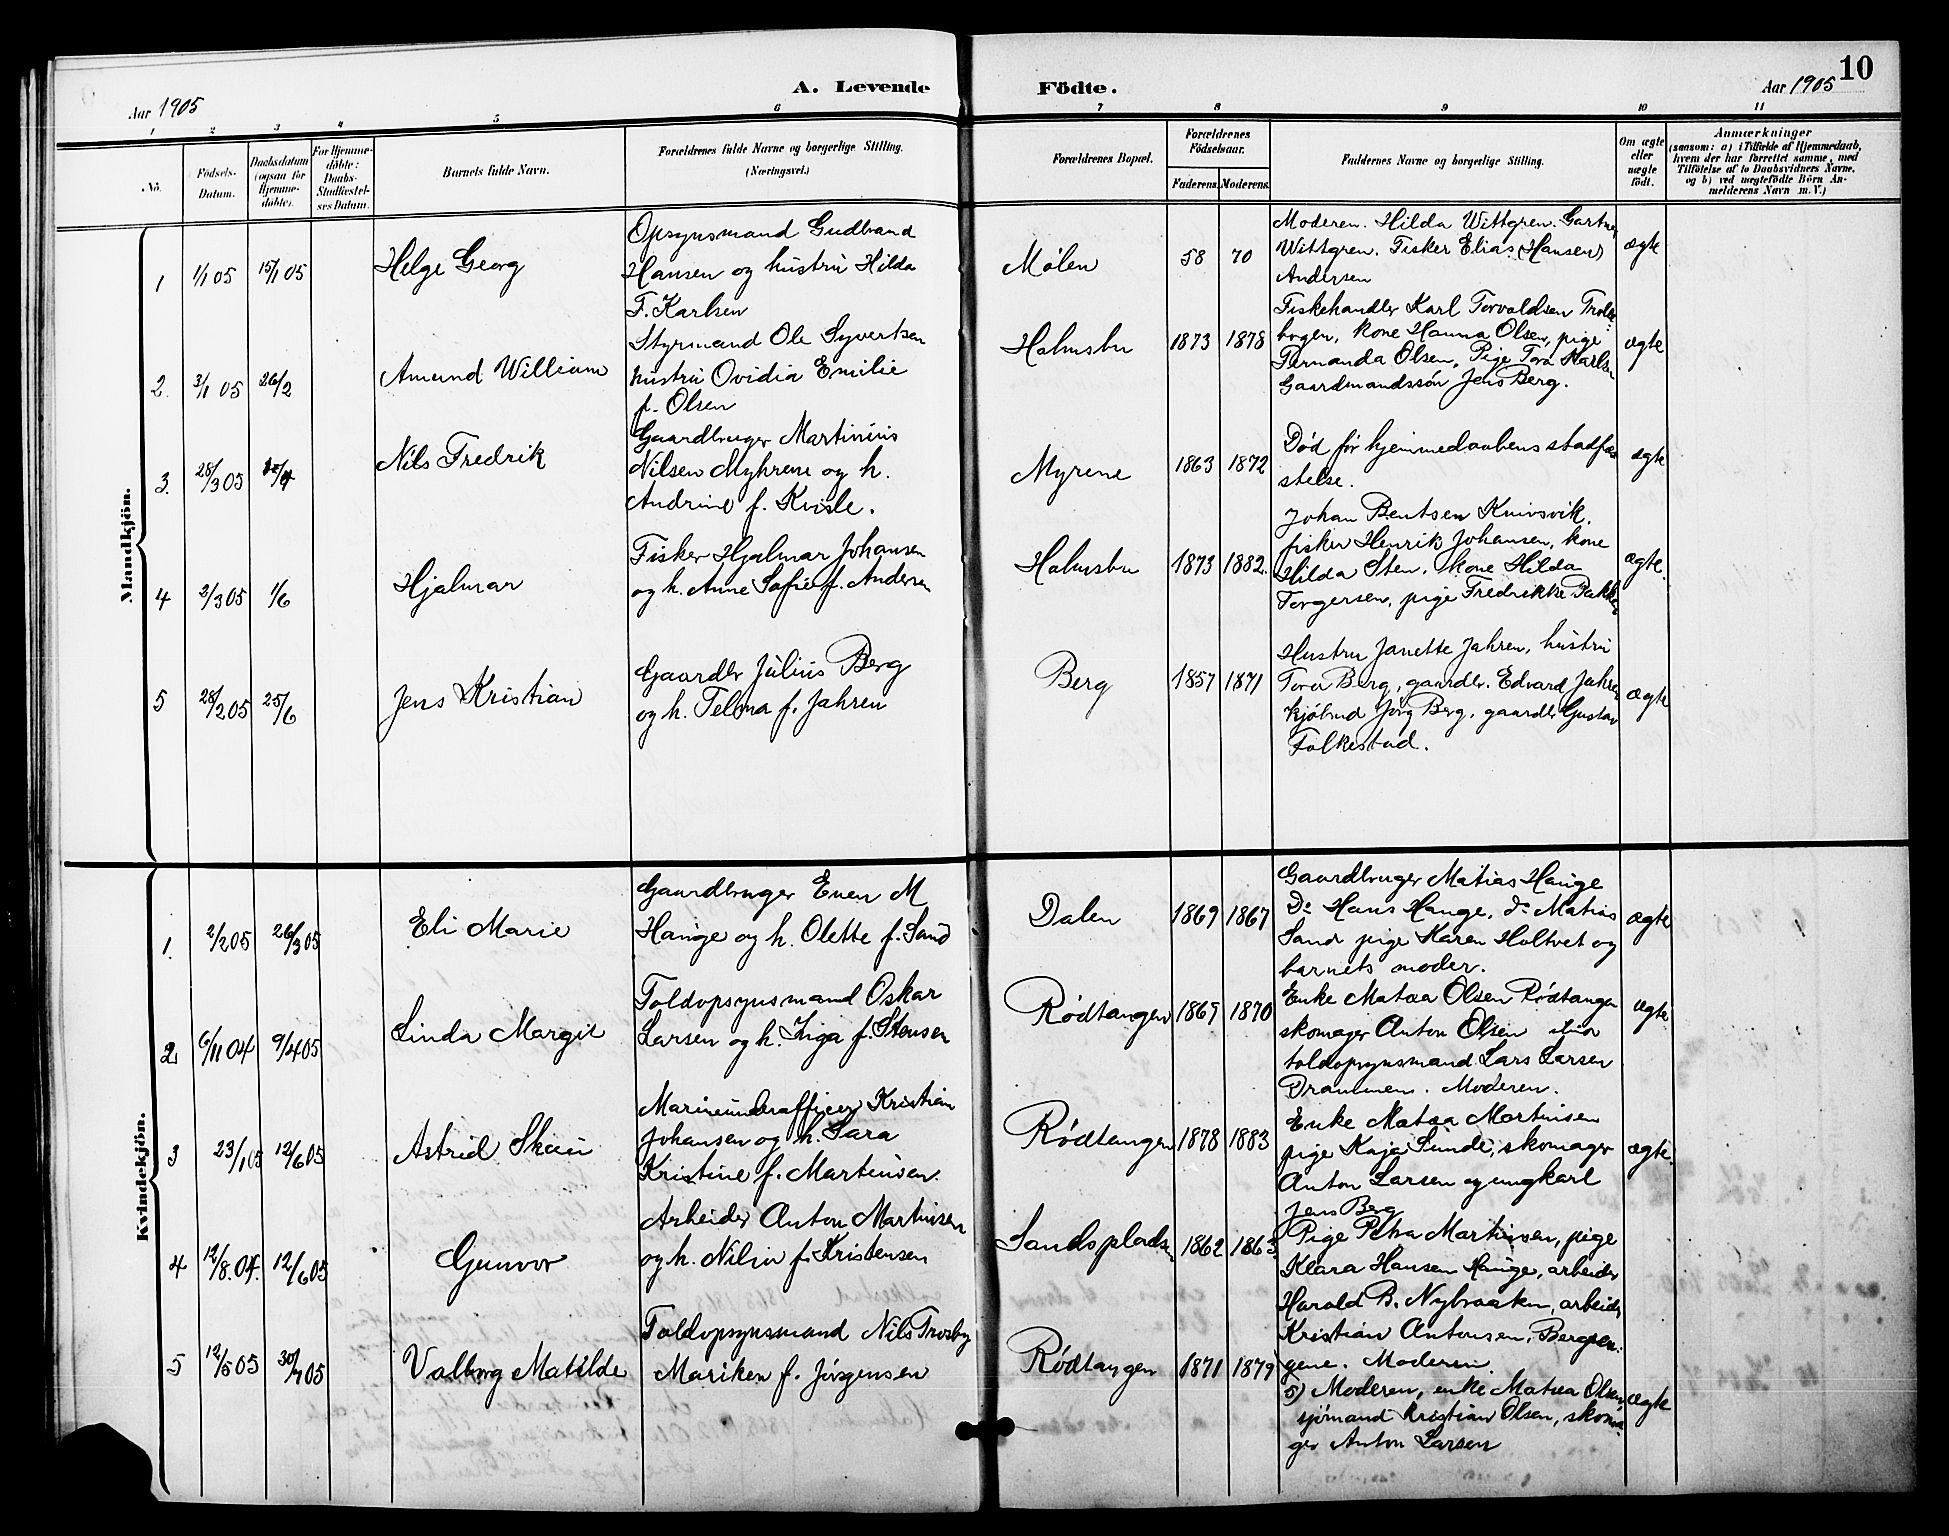 10
A. Levende Födte.
Aar 1905
Aar 1905
1 2 3 4 5 6 7 8 9 10 11
No.
Födsels-Datum.
Daabsdatum (ogsaa för Hjemme-döbte).
For Hjemme-döbte: Daabs-Stadfæstel-ses Datum.
Barnets fulde Navn.
Forældrenes fulde Navne og borgerlige Stilling. (Næringsvei.)
Forældrenes Bopæl.
Forældrenes Födselsaar.
Faderens. Moderens.
Faddernes Navne og borgerlige Stilling.
Om ægte eller uægte födt.
Anmærkninger
(saasom: a) i Tilfælde af Hjemmedaab, hvem der har forrettet samme, med Tilföielse af to Daabsvidners Navne, og b) ved uægtefödte Börn Anmelderens Navn m. V.)
Mandkjön.
1 1/1 05 15/1 05 Helge Georg
Opsynsmand Gudbrand
Hansen og hustru Hilda
F. Karlsen
Mølen 58 70
Moderen. Hilda Wittgren. Gartner
Wittgren. Fisker Elias (Hansen)
Andersen
ægte
2. 3/1 05 26/2 Amund William
Styrmand Ole Syvertsen
hustru Ovidia Emilie
f. Olsen
Holmsbu 1873 1878
Fiskehandler Karl Torvaldsen
kone Hanna Olsen, pige
Fernanda Olsen, Pige Tora Karlsen
Gaardmandssön Jens Berg.
ægte
3. 28/3 05 Nils Fredrik
Gaardbruger Martinius
Nilsen Myhrene og h.
Andrine f. Kvisle.
Myrene 1863 1872
Död før hjemmedaabens stadfæ
stelse.
ægte
4 2/3 05 1/6 Hjalmar
Fisker Hjalmar Johansen
og h. Anne Sofie f. Andersen
Holmsbu 1873 1882.
Johan Bentsen Knivsvik,
fisker Henrik Johansen, kone
Hilda Sten, kone Hilda
Torgersen, pige Fredrikke
ægte.
5 28/2 05 25/6 Jens Kristian
Gaardbr Julius Berg
og h. Telma f. Jahren
Berg 1857 1871
Hustru Janette Jahren, hustru
Tora Berg, gaardbr. Edvard Jahren
Jörg Berg, gaardbr Gustav
Folkestad.
ægte
Kvindekjön.
1. 2/2 05 26/3 05 Eli Marie
Gaardbruger Even M
Hauge og h. Olette f. Sand
Dalen 1869 1867
Gaardbruger Matias Hauge
Do Hans Hauge, do Matias
Sand pige Karen Holtvet og
barnets moder.
ægte
2 6/11 04 9/4 05 Linda Margit
Toldopsynsmand Oskar
Larsen og h. Inga f. Stensen
Rödtangen 1869 1870
Enke Matea Olsen Rödtangen
skomager Anton Olsen
toldopsynsmand Lars Larsen
Drammen. Moderen.
ægte
3 23/1 05 12/6 05 Astrid Skau
Marineunderofficer Kristian
Johansen og h. Sara
Kristine f. Martinsen.
Rödtangen 1878 1883
Enke Matea Martinsen
pige Kaja Sunde, skomager
Anton Larsen og ungkarl
Jens Berg
ægte.
4 12/8. 04. 12/6 05 Gunvor
Arbeider Anton Martinsen
og h. Nilia f. Kristensen
Sandspladsen 1862 1863
Pige Petra Martinsen, pige
Klara Hansen Hauge, arbeider
Harald B. Nybraaten, arbeider
Kristian Antonsen, Bergsen-
gene. Moderen
5 12/5 05 30/7 05 Valborg Matilde
Toldopsynsmand Nils Trosby
Mariken f. Jörgensen
Rödtangen 1871 1879
5) Moderen, enke Matea Olsen,
sjömand Kristian Olsen, skoma
ger Anton Larsen
ægte